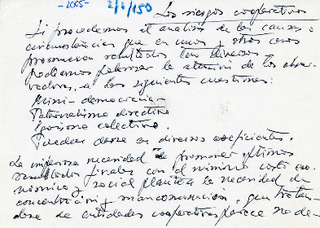 -2005- 2/6/150
Los riesgos cooperativos
Si procedemos al analisis de las causas o
circunstancias que en unos y otros casos
promueven resultados tan diversos
podemos polarizar la atención de los obser-
vadores, a las siguientes cuestiones:
Mini-democracias
Paternalismo directivo
Egoismo colectivo.
Pueden darse en diversos coeficientes.
La imperiosa necesidad de promover óptimos
resultados finales con el minimo coste eco-
nómico y social plantea la necesidad de
concentración y mancomunación, que tratan-
dose de entidades cooperativas parece no de-